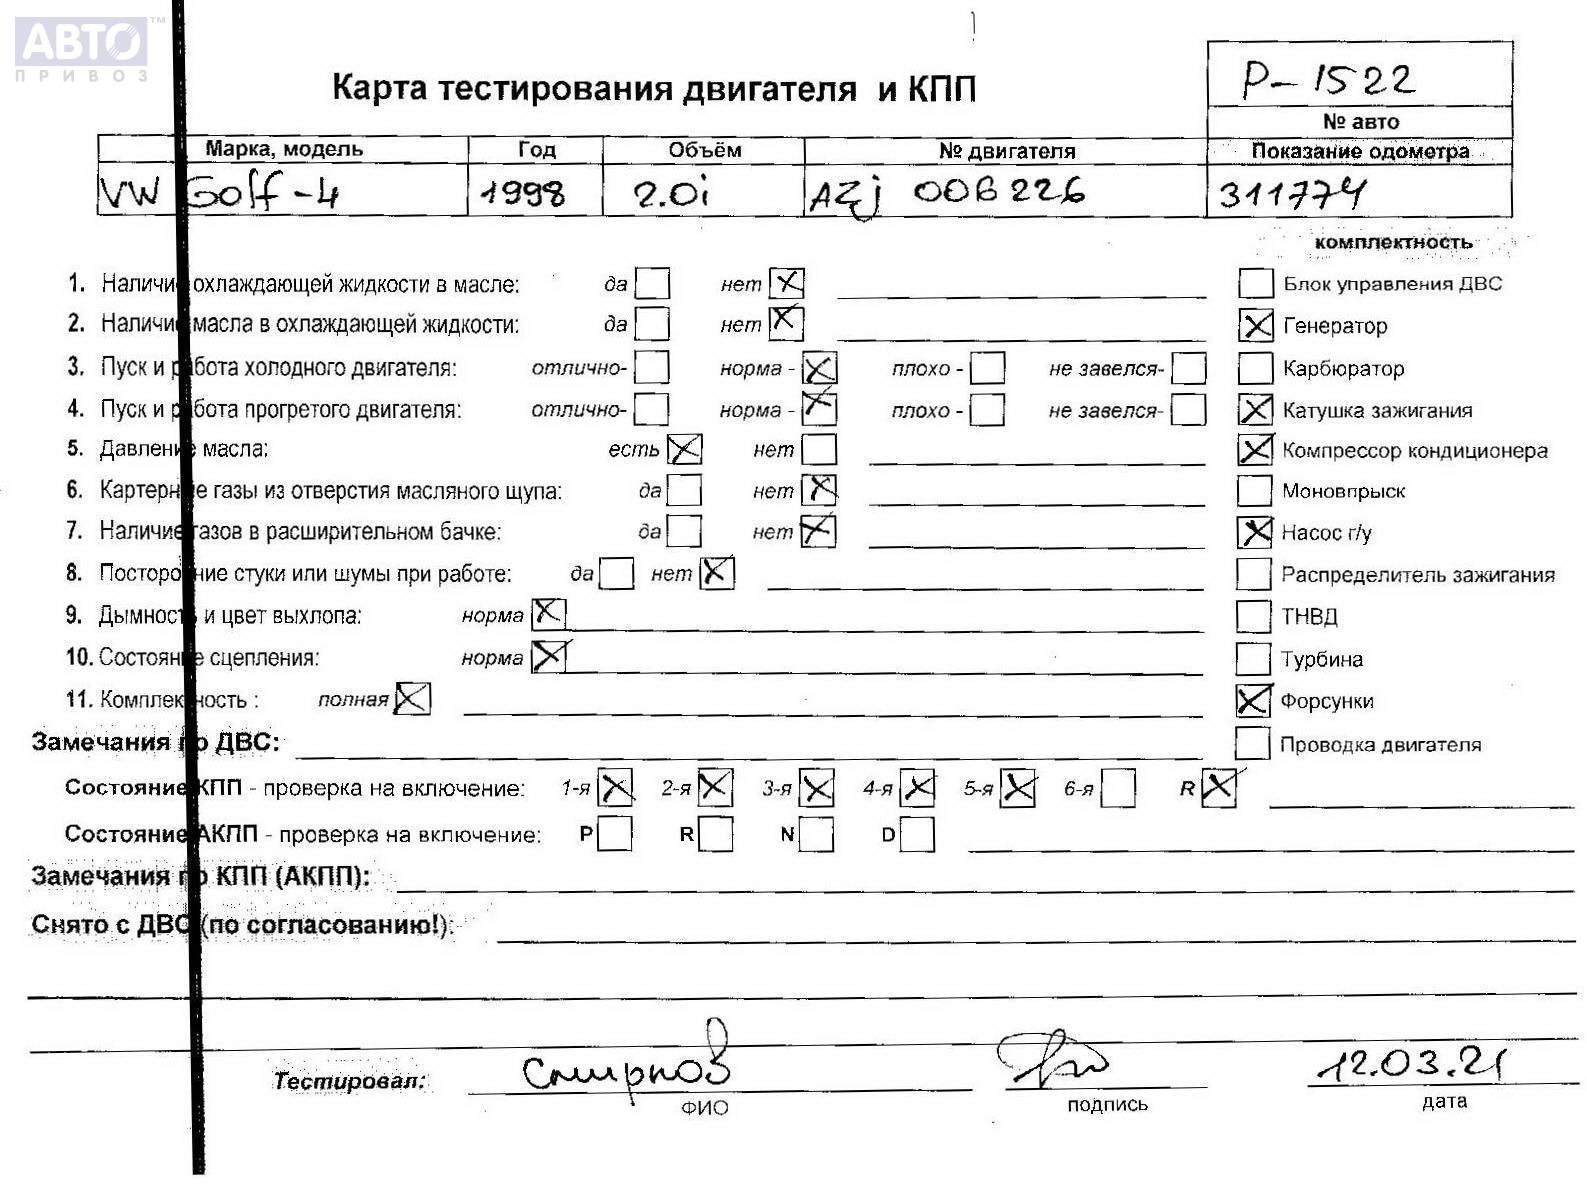 АВТО™
ПРИВОЗ
Карта тестирования двигателя и КПП
P-1522
№ авто
Марка, модель Год Объём № двигателя Показание одометра
VW Golf-4 1998 2.0i AZj 006226 311774
комплектность
1. Наличие охлаждающей жидкости в масле: да нет X
Блок управления ДВС
2. Наличие масла в охлаждающей жидкости: да нет X
X Генератор
3. Пуск и работа холодного двигателя: отлично- норма - X плохо - не завелся-
Карбюратор
4. Пуск и работа прогретого двигателя: отлично- норма - X плохо - не завелся-
X Катушка зажигания
5. Давление масла: есть X нет
X Компрессор кондиционера
6. Картерные газы из отверстия масляного щупа: да нет X
Моновпрыск
7. Наличие газов в расширительном бачке: да нет X
X Насос г/у
8. Посторонние стуки или шумы при работе: да нет X
Распределитель зажигания
9. Дымность и цвет выхлопа: норма X
ТНВД
10. Состояние сцепления: норма X
Турбина
11. Комплектность : полная X
X Форсунки
Замечания по ДВС:
Проводка двигателя
Состояние КПП - проверка на включение: 1-я X 2-я X 3-я X 4-я X 5-я X 6-я R X
Состояние АКПП - проверка на включение: P R N D
Замечания по КПП (АКПП):
Снято с ДВС (по согласованию!):
Тестировал: Смирнов 12.03.21
ФИО подпись дата